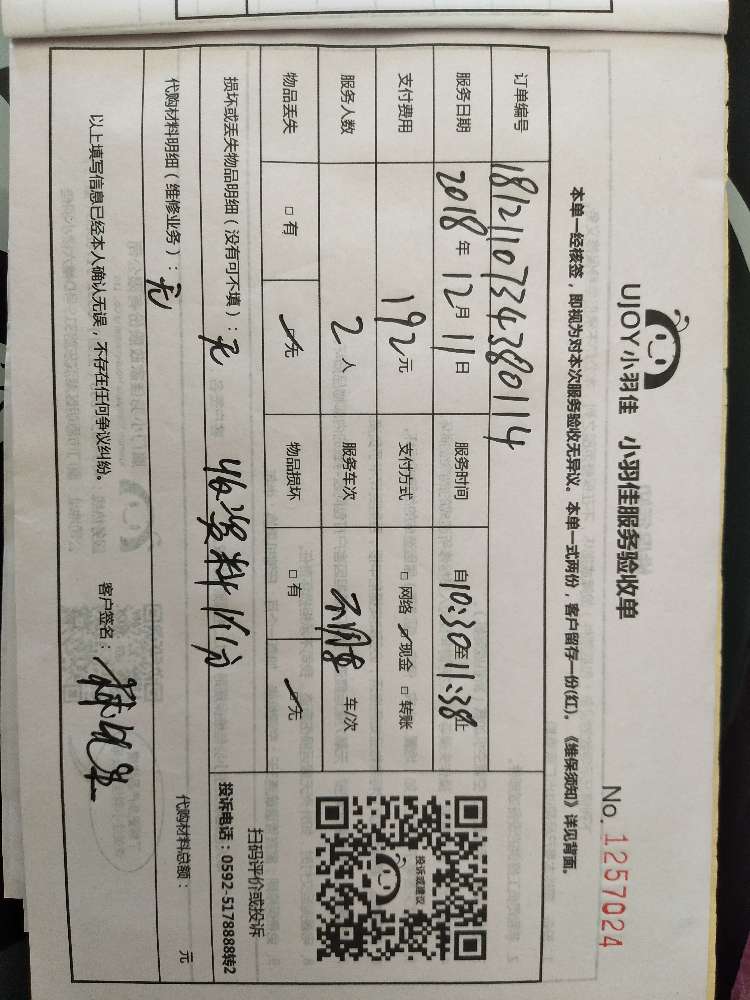 UJOY小羽佳 小羽佳服务验收单
No. 1257024
本单一经核签，即视为对本次服务验收无异议。本单一式两份，客户留存一份(红)。《维保须知》详见背面。
订单编号 1812110734380114
服务日期 2018年12月11日 服务时间 自10:30至11:38止
支付费用 192元 支付方式 □网络 ☑现金 □转账
服务人数 2人 服务车次 车/次
物品丢失 □有 ☑无 物品损坏 □有 ☑无
损坏或丢失物品明细（没有可不填）：无
收资料1份
代购材料明细（维修业务）：无
代购材料总额： 元
投诉或建议
扫码评价或投诉
投诉电话：0592-5178888转2
以上填写信息已经本人确认无误，不存在任何争议纠纷。
客户签名：